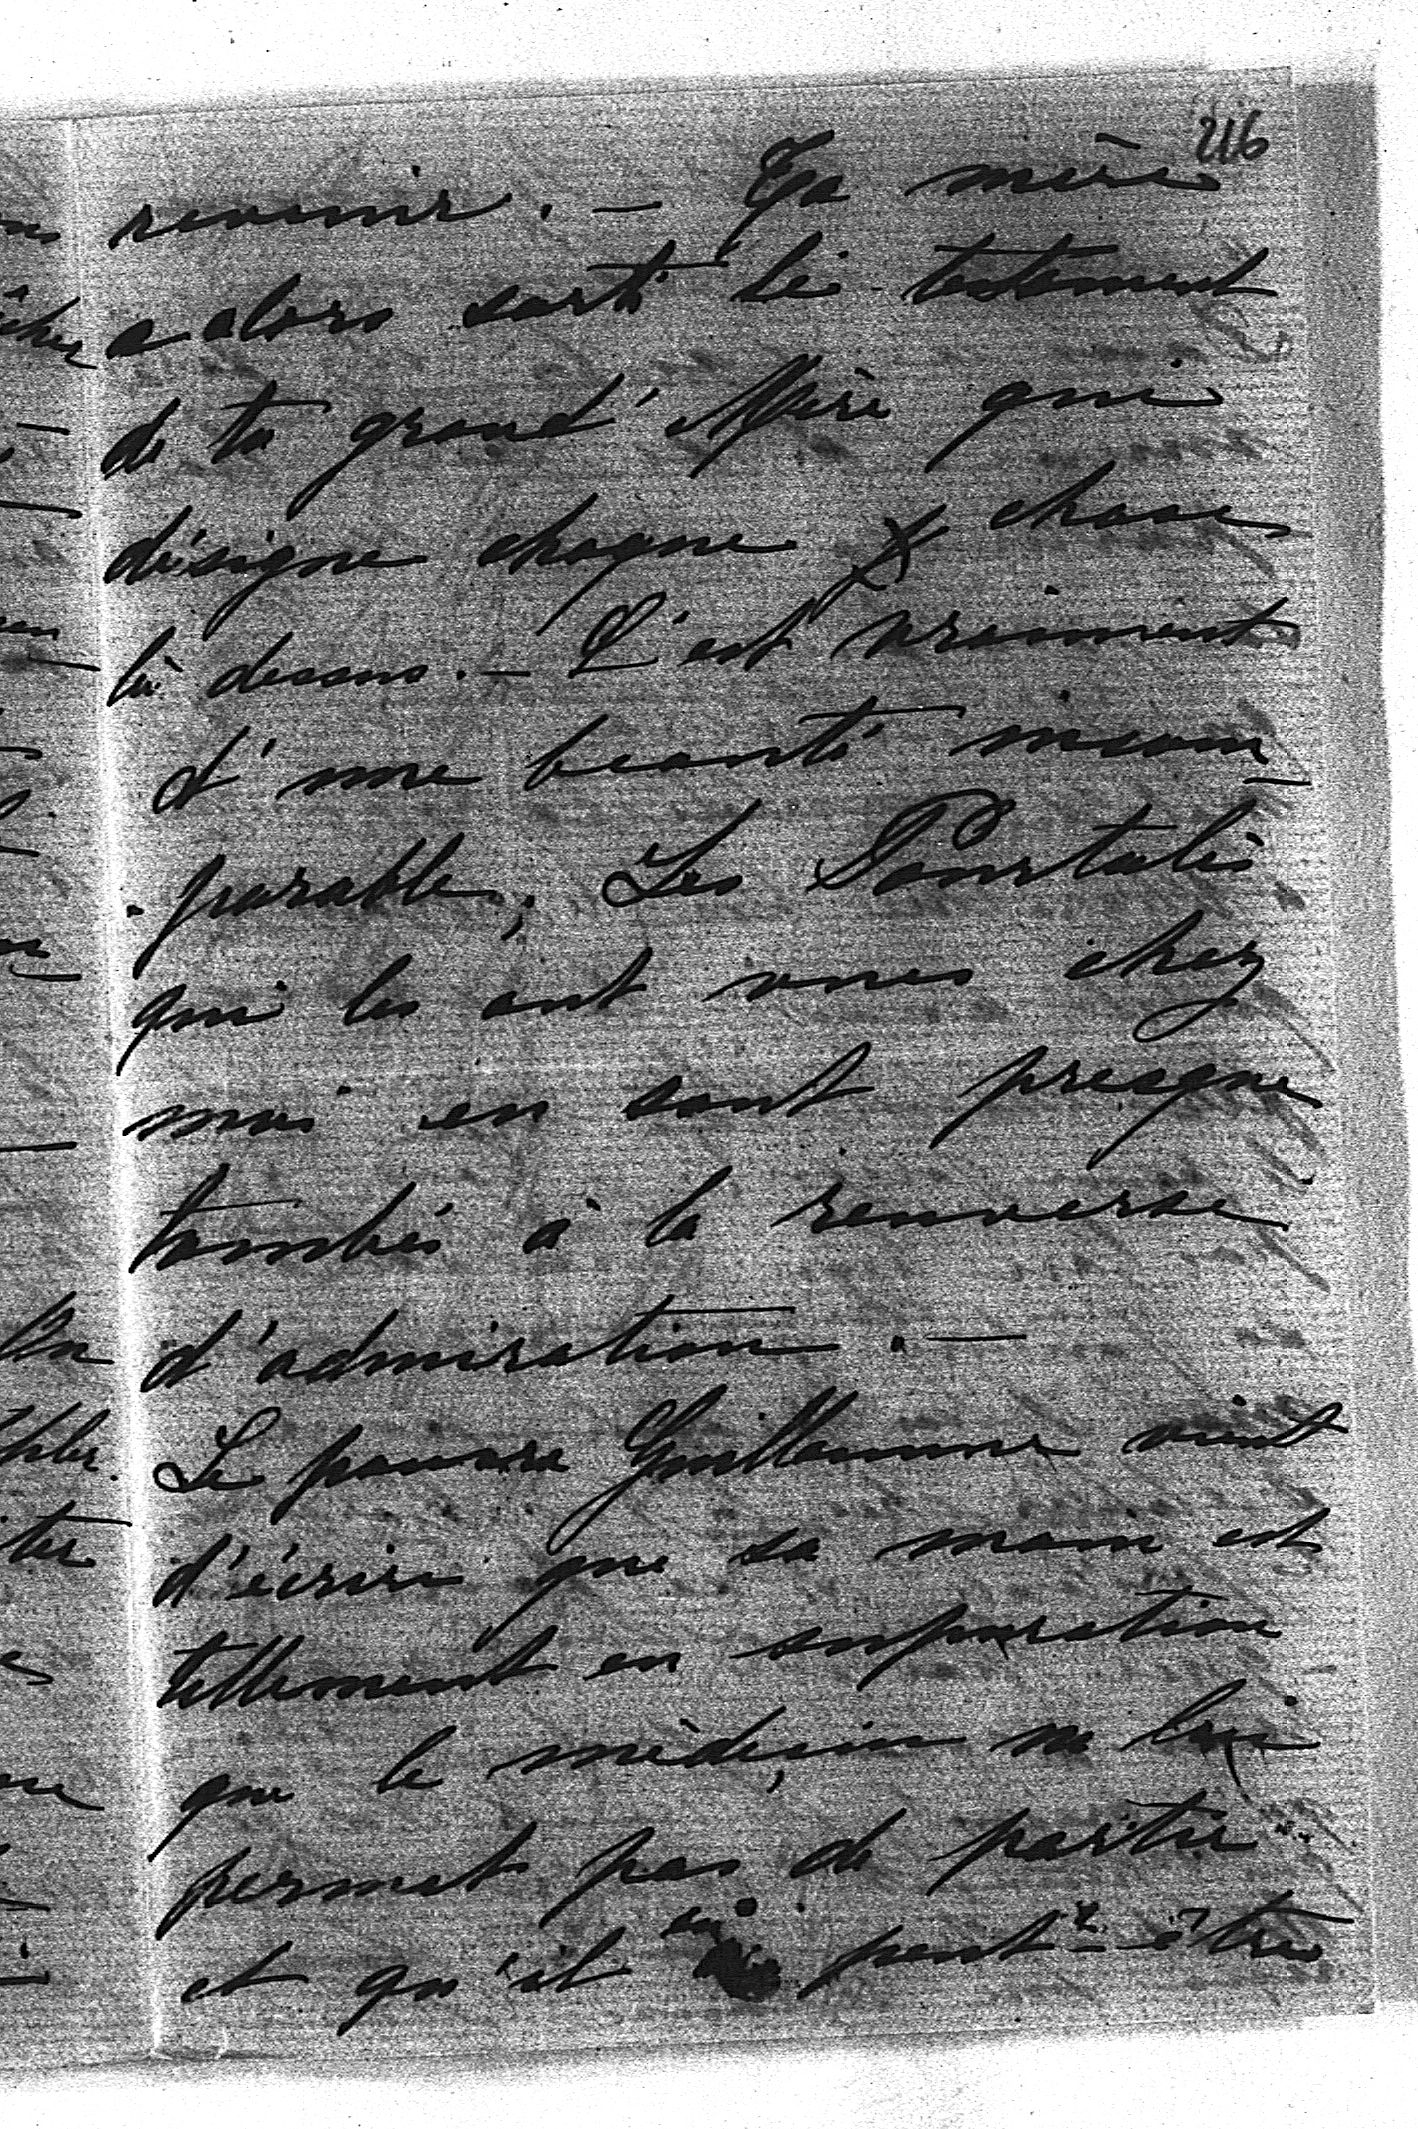 216
revenir. — Ta mère
a alors sorti le testament
de ta grand'Mère qui
désigne chaque chose
là dessus. — C'est vraiment
d'une beauté incom-
-parable; Les Pourtalès
qui les ont vues chez
moi en sont presque
tombés à la renverse
d'admiration. —
Le pauvre Guillaume vient
d'écrire que sa main est
tellement en supuration
que le médecin ne lui
permet pas de partir
et qu'il en peut-être